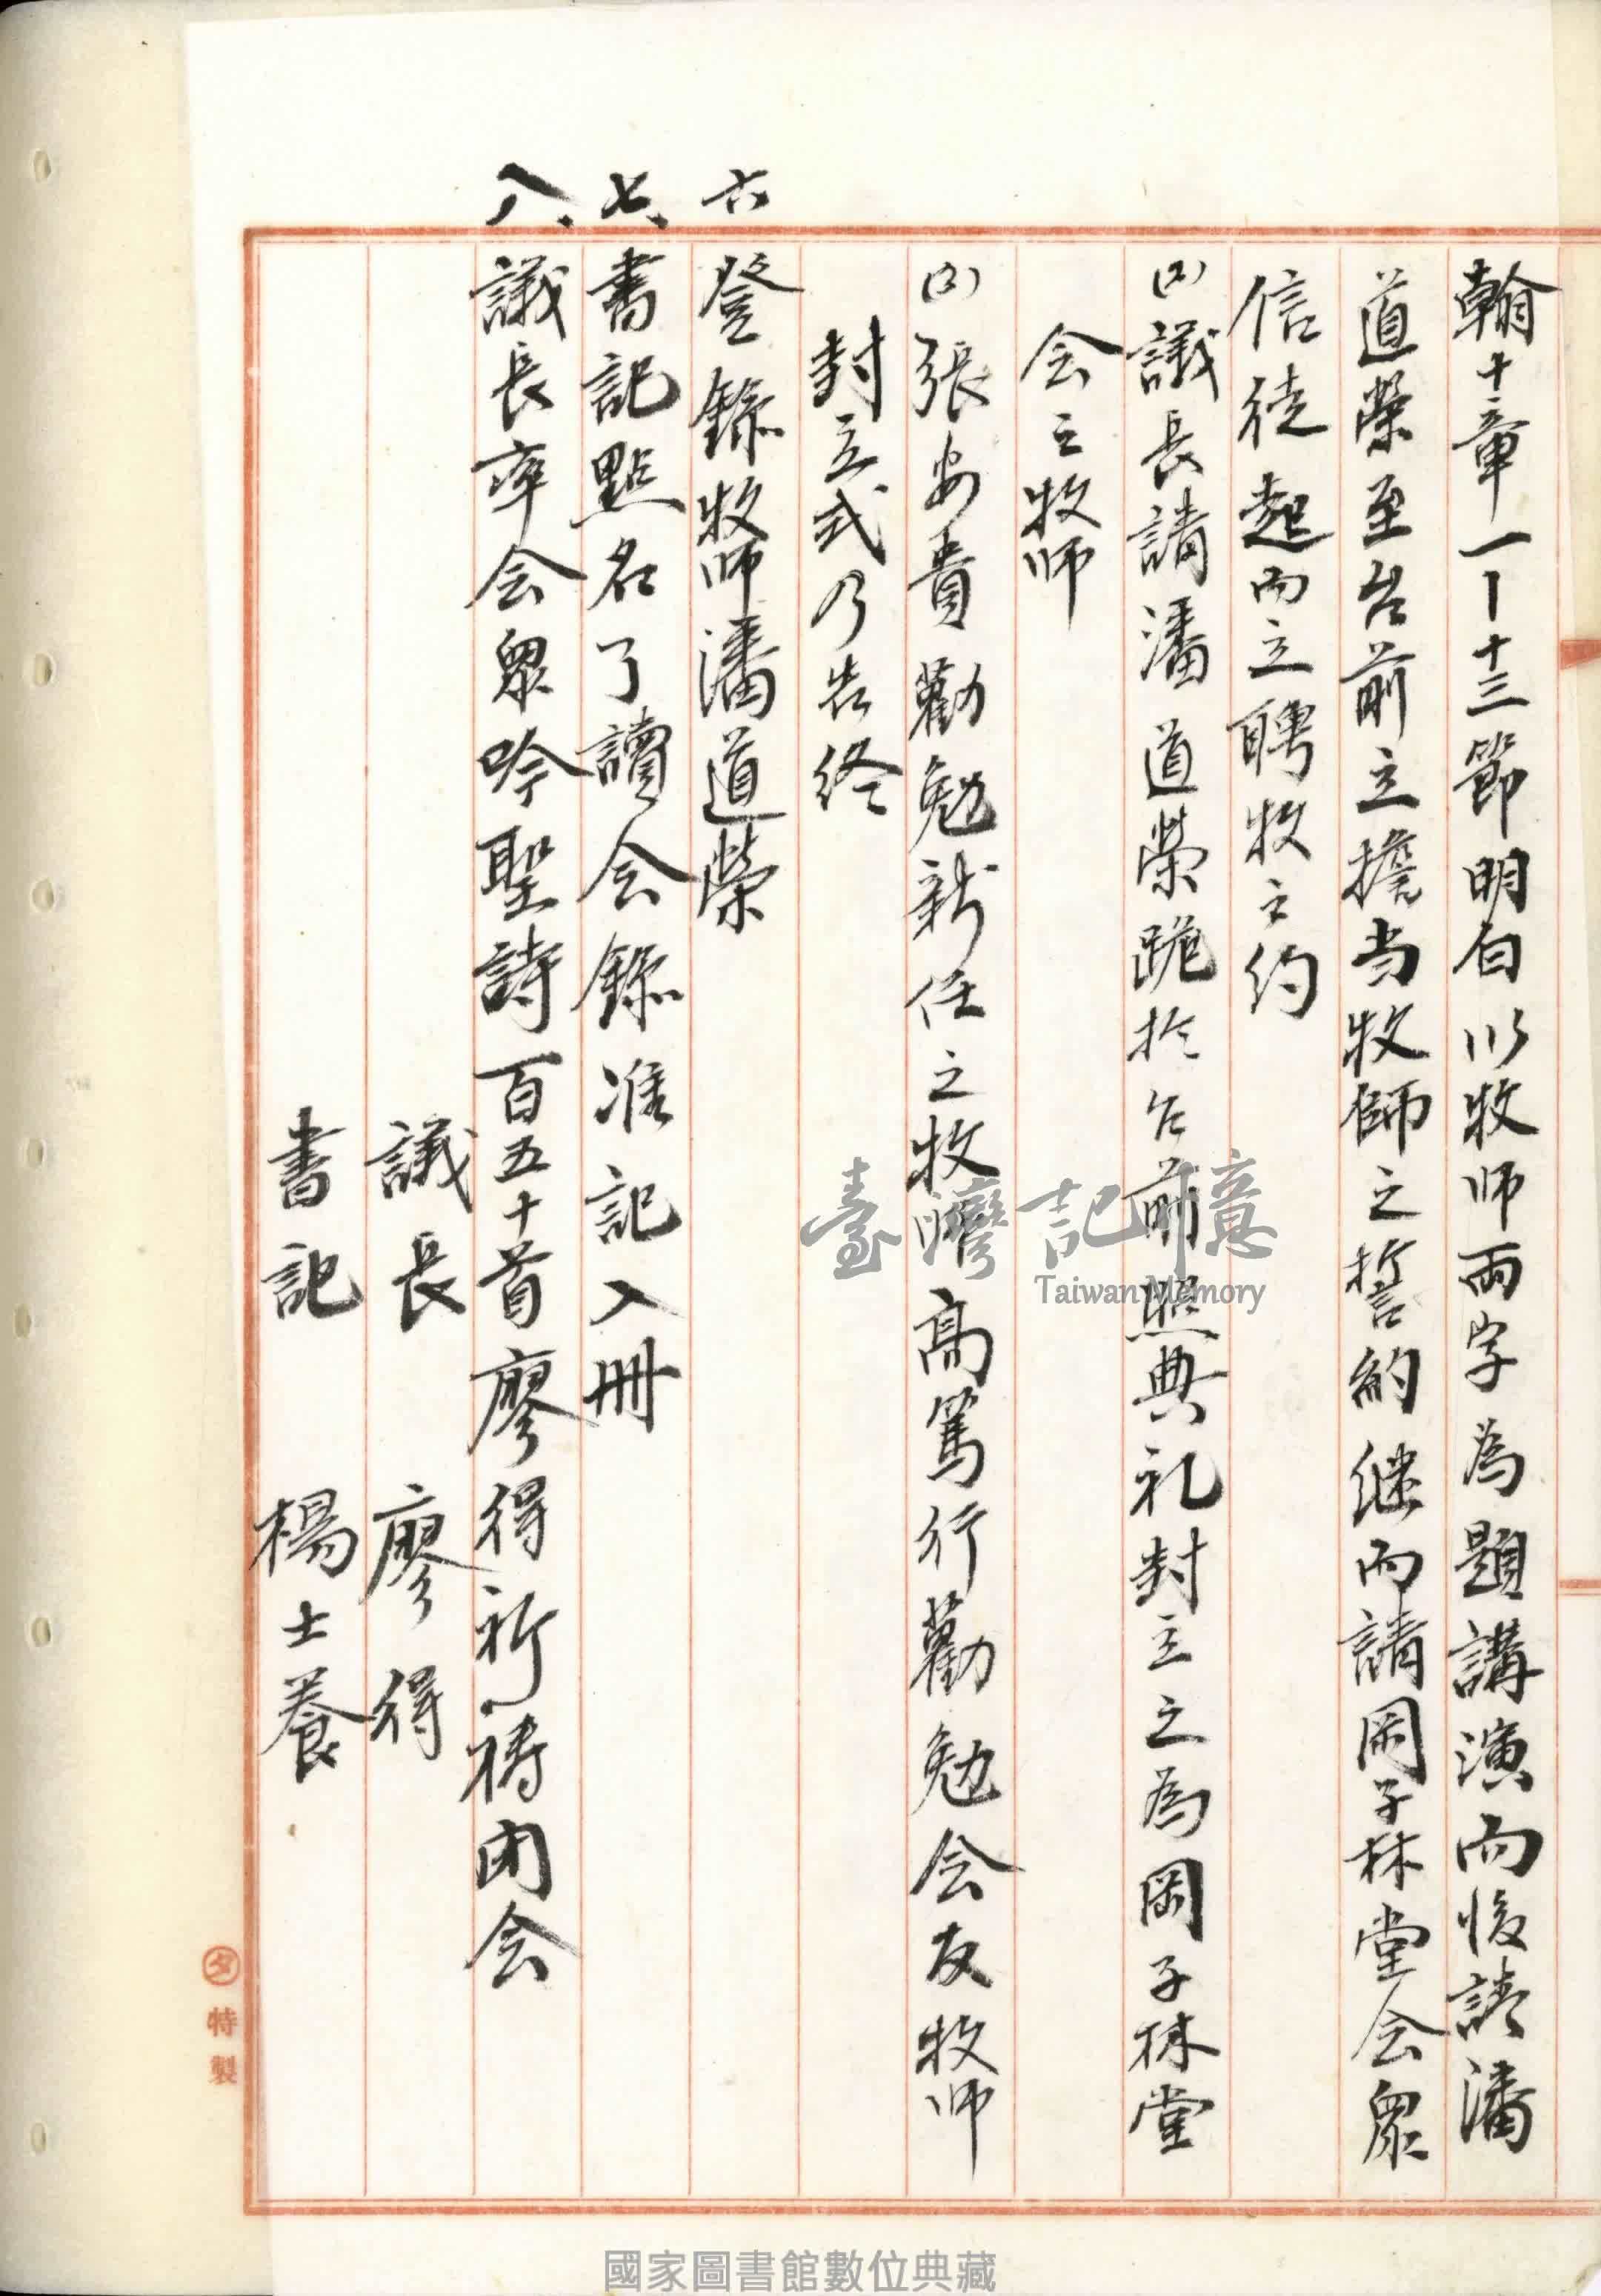 翰十章一ー十三節明白以牧师兩字為題講演而後請潘
道榮至台前立擔当牧師之誓約継而請岡子林堂会衆
信徒起而立聘牧之約
議長請潘道榮跪扵台前照典礼封立之為岡子林堂
会之牧师
張安貴勸勉新任之牧师高篤行勸勉会友牧师
封立式乃告終
六登錄牧师潘道榮
七、書記點名了讀会錄准記入冊
八、議長率会衆吟聖詩百五十首廖得祈祷闭会
議長 廖得
書記 楊士養
タ特製
臺灣記憶
Taiwan Memory
國家圖書館數位典藏